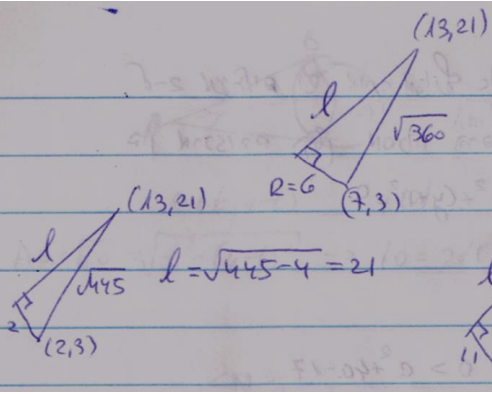 (13,21)
l
√360
R=6
(7,3)
(13,21)
l
√445
l = √445-4 = 21
2
(2,3)
l
11